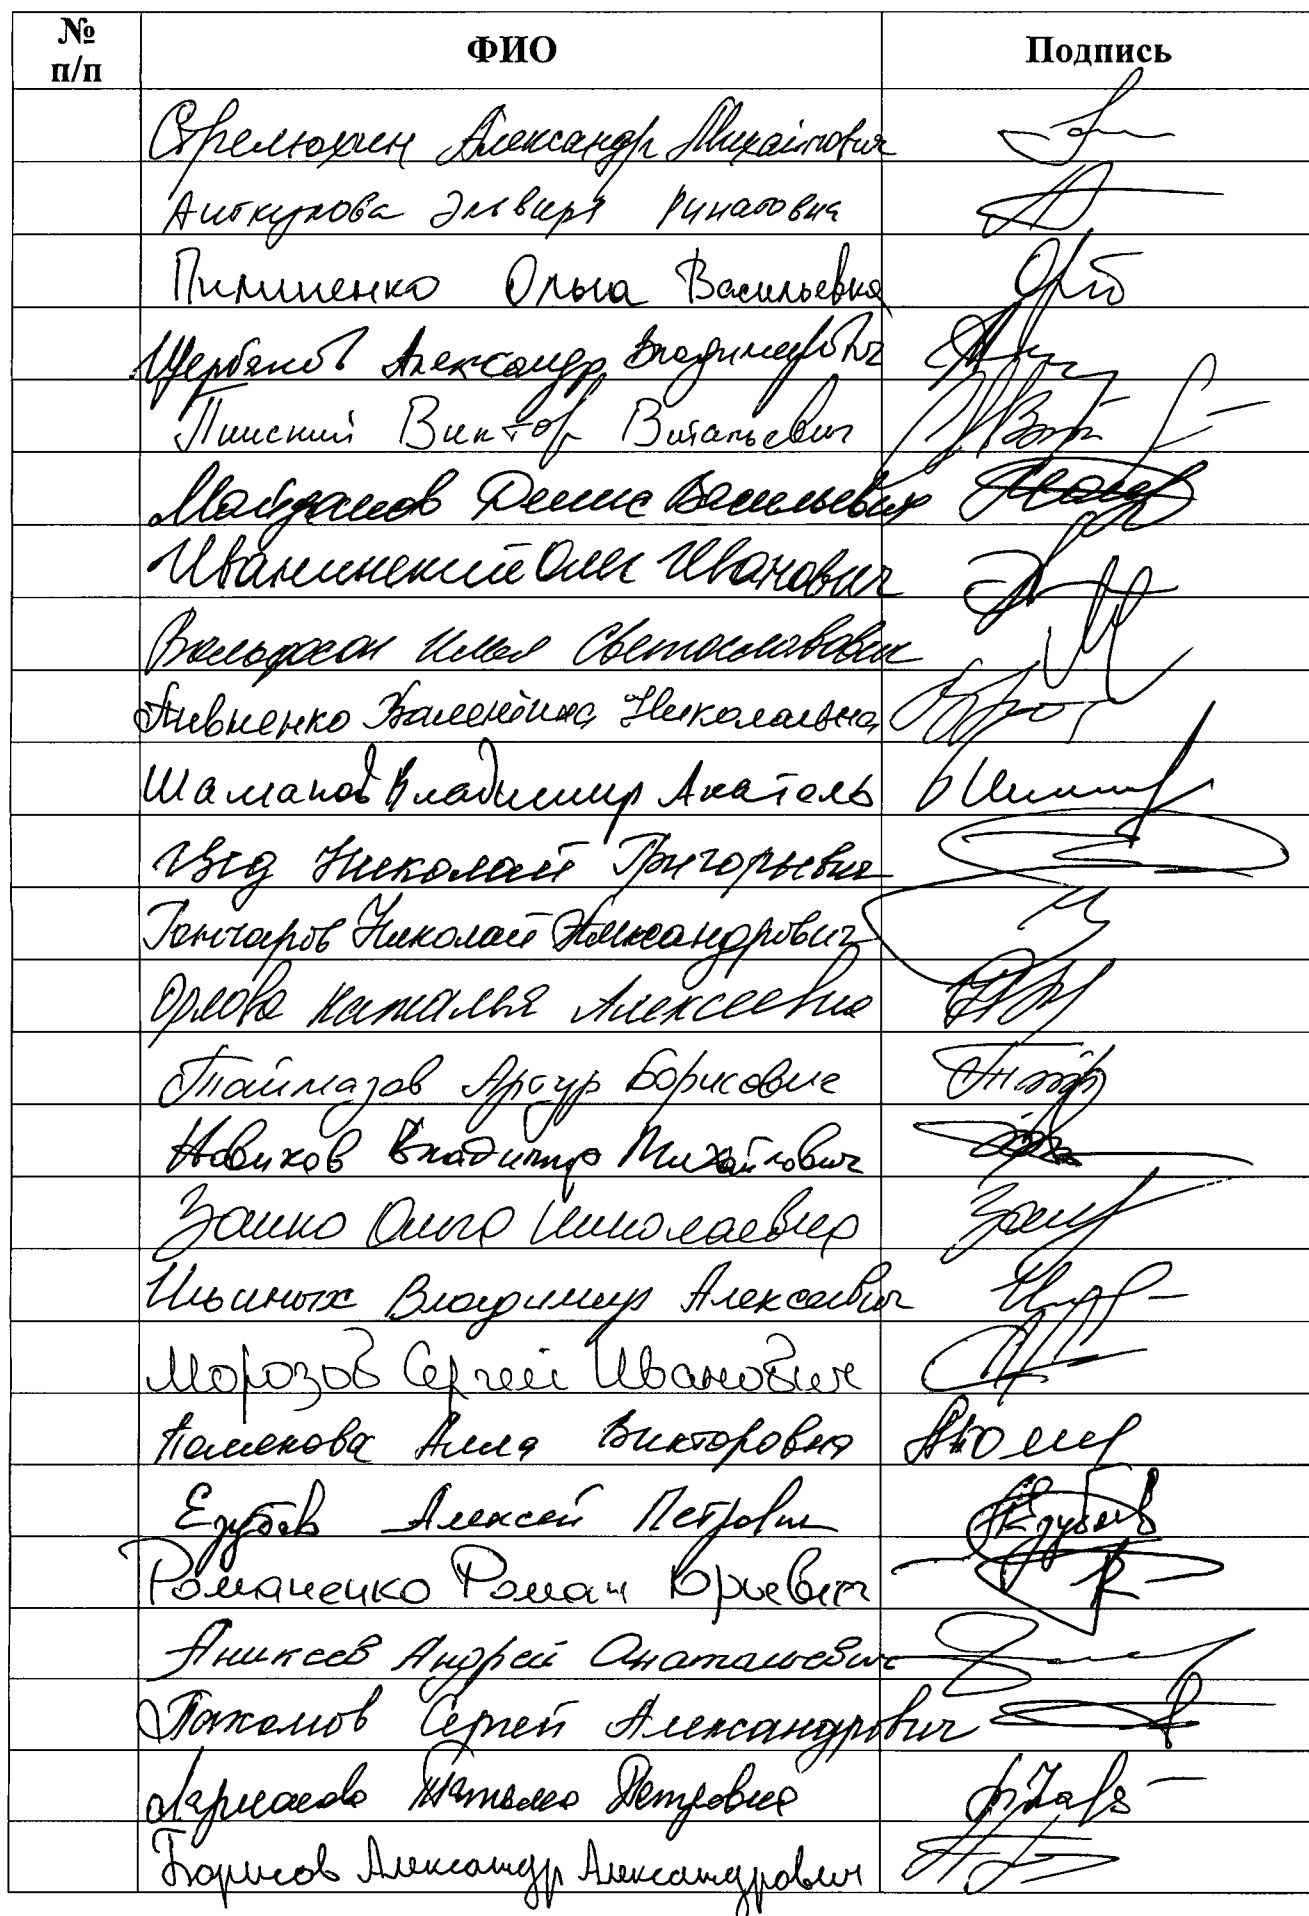 № п/п ФИО Подпись
Стрелюхин Александр Михайлович
Аиткулова Эльвира Ринатовна
Пилишенко Ольга Васильевна
Щербаков Александр Владимирович
Пинский Виктор Витальевич
Майданов Денис Васильевич
Иванинский Олег Иванович
Вольфсон Илья Светославович
Пивненко Валентина Николаевна
Шаманов Владимир Анатоль
Николай Григорьевич
Гончаров Николай Александрович
Орлова Наталья Алексеевна
Таймазов Артур Борисович
Новиков Владимир Михайлович
Занко Ольга Николаевна
Ильиных Владимир Алексеевич
Морозов Сергей Иванович
Полякова Алла Викторовна
Езубов Алексей Петрович
Езубов
Романенко Роман Юрьевич
Аникеев Андрей Анатольевич
Пахомов Сергей Александрович
Ларионова Татьяна Петровна
Борисов Александр Александрович